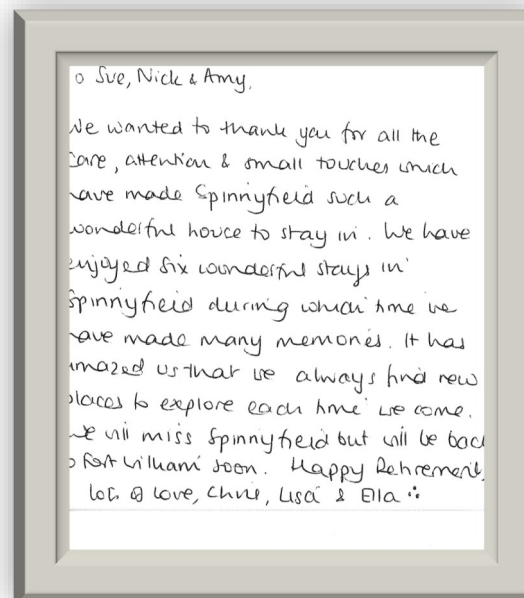 o Sue, Nick & Amy,
We wanted to thank you for all the
care, attention & small touches which
have made Spinnyfield such a
wonderful house to stay in. We have
enjoyed six wonderful stays in
Spinnyfield during which time we
have made many memories. It has
amazed us that we always find new
places to explore each time we come.
We will miss Spinnyfield but will be back
o Fort William soon. Happy Retirement,
lots of love, Chris, Lisa & Ella